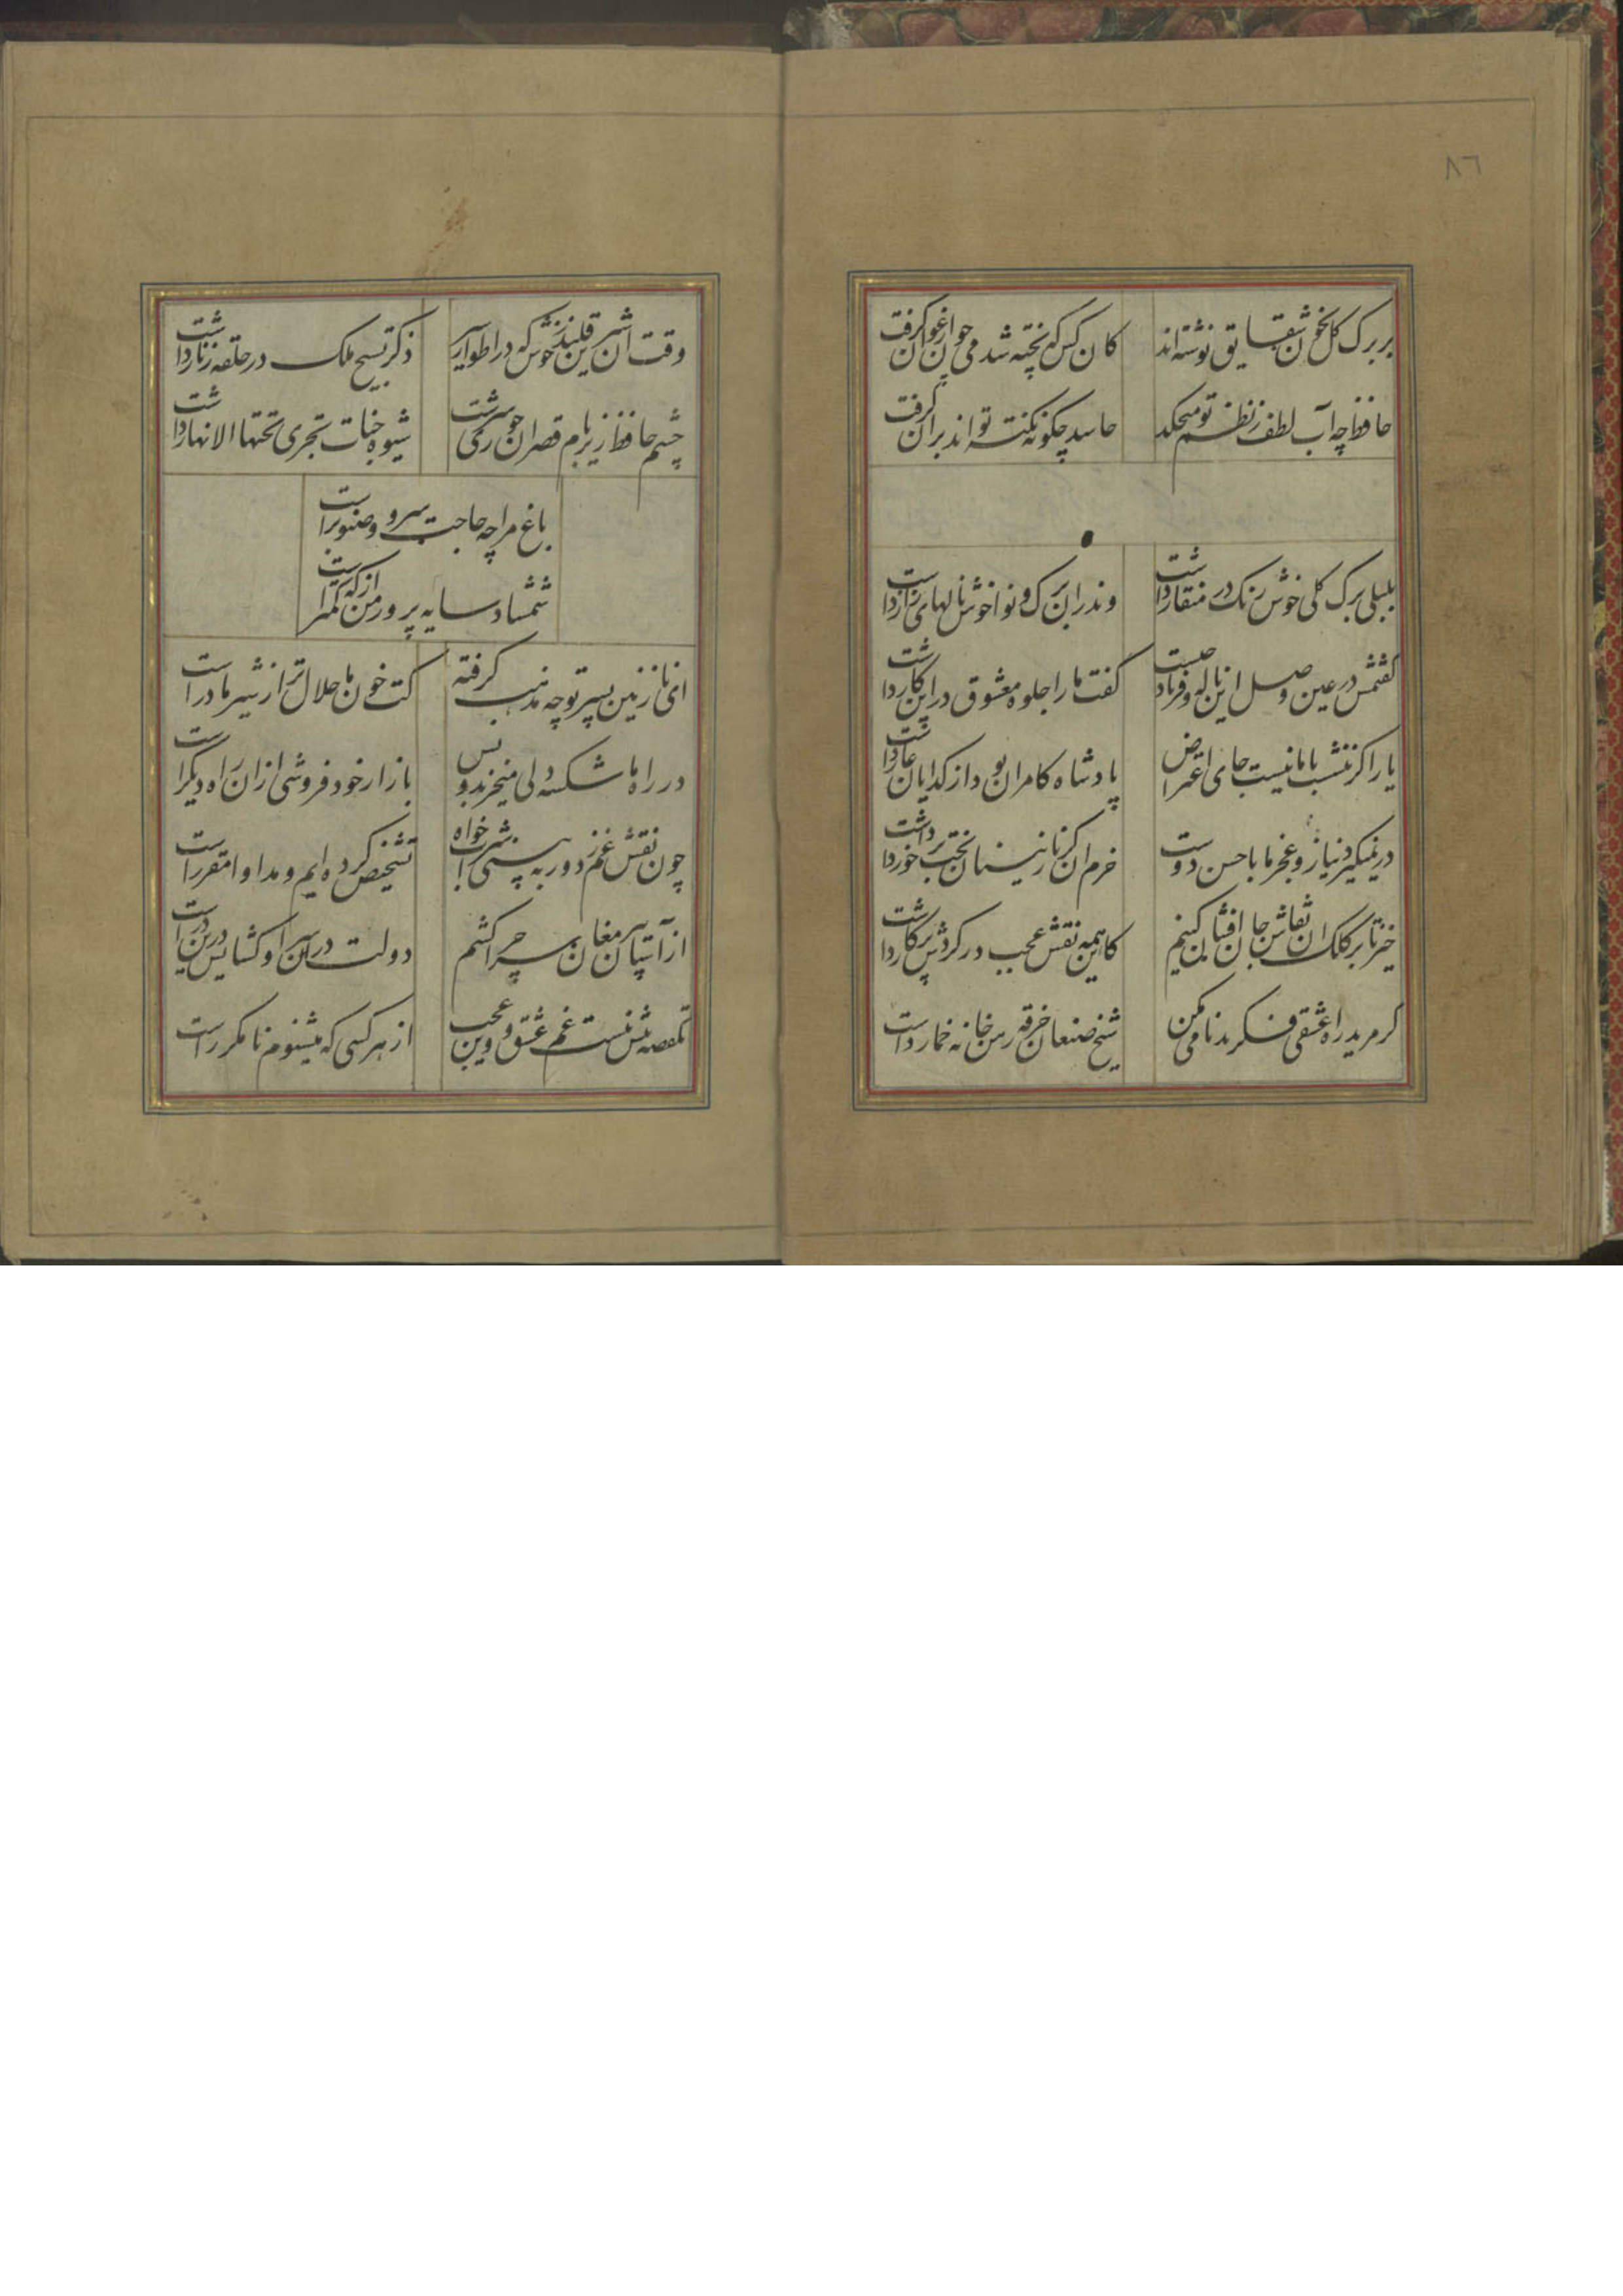 ٨٦
بر برک کل بخون شقایق نوشته اند
کان کس که پخته شد می چون ارغوان کرفت
حافظ چه آب لطف ز نظم تو میچکد
حاسد چکونه نکته تواند بران کرفت
بلبلی برک کلی خوش رنک در منقار داشت
وندران برک و نوا خوش نالهای زار داشت
کفتمش در عین وصل این ناله و فریاد چیست
کفت ما را جلوه معشوق در این کار داشت
یار اکر ننشست با ما نیست جای اعتراض
پادشاه کامران بود از کدایان عار داشت
در نمیکیرد نیاز و عجز ما با حسن دوست
خرم آن کز نازنینان بخت برخوردار داشت
خیز تا بر کلک آن نقاش جان افشان کنیم
کاین همه نقش عجب در کردش پرکار داشت
کر مرید راه عشقی فکر بدنامی مکن
شیخ صنعان خرقه رهن خانه خمار داشت
وقت آن شیرین قلندر خوش که در اطوار سیر
ذکر تسبیح ملک در حلقه زنار داشت
چشم حافظ زیر بام قصر آن حوری سرشت
شیوه جنات تجری تحتها الانهار داشت
باغ مرا چه حاجت سرو و صنوبر است
شمشاد سایه پرور من از که کمتر است
ای نازنین پسر تو چه مذهب کرفته
کت خون ما حلال تر از شیر مادر است
در راه ما شکسته دلی میخرند و بس
بازار خود فروشی ازان راه دیکر است
چون نقش غم ز دور به بینی شراب خواه
تشخیص کرده ایم و مداوا مقرر است
از آستان پیر مغان سر چرا کشم
دولت دران سرا و کشایش درین در است
یکقصه بیش نیست غم عشق و وین عجب
از هر کسی که میشنوم نامکرر است